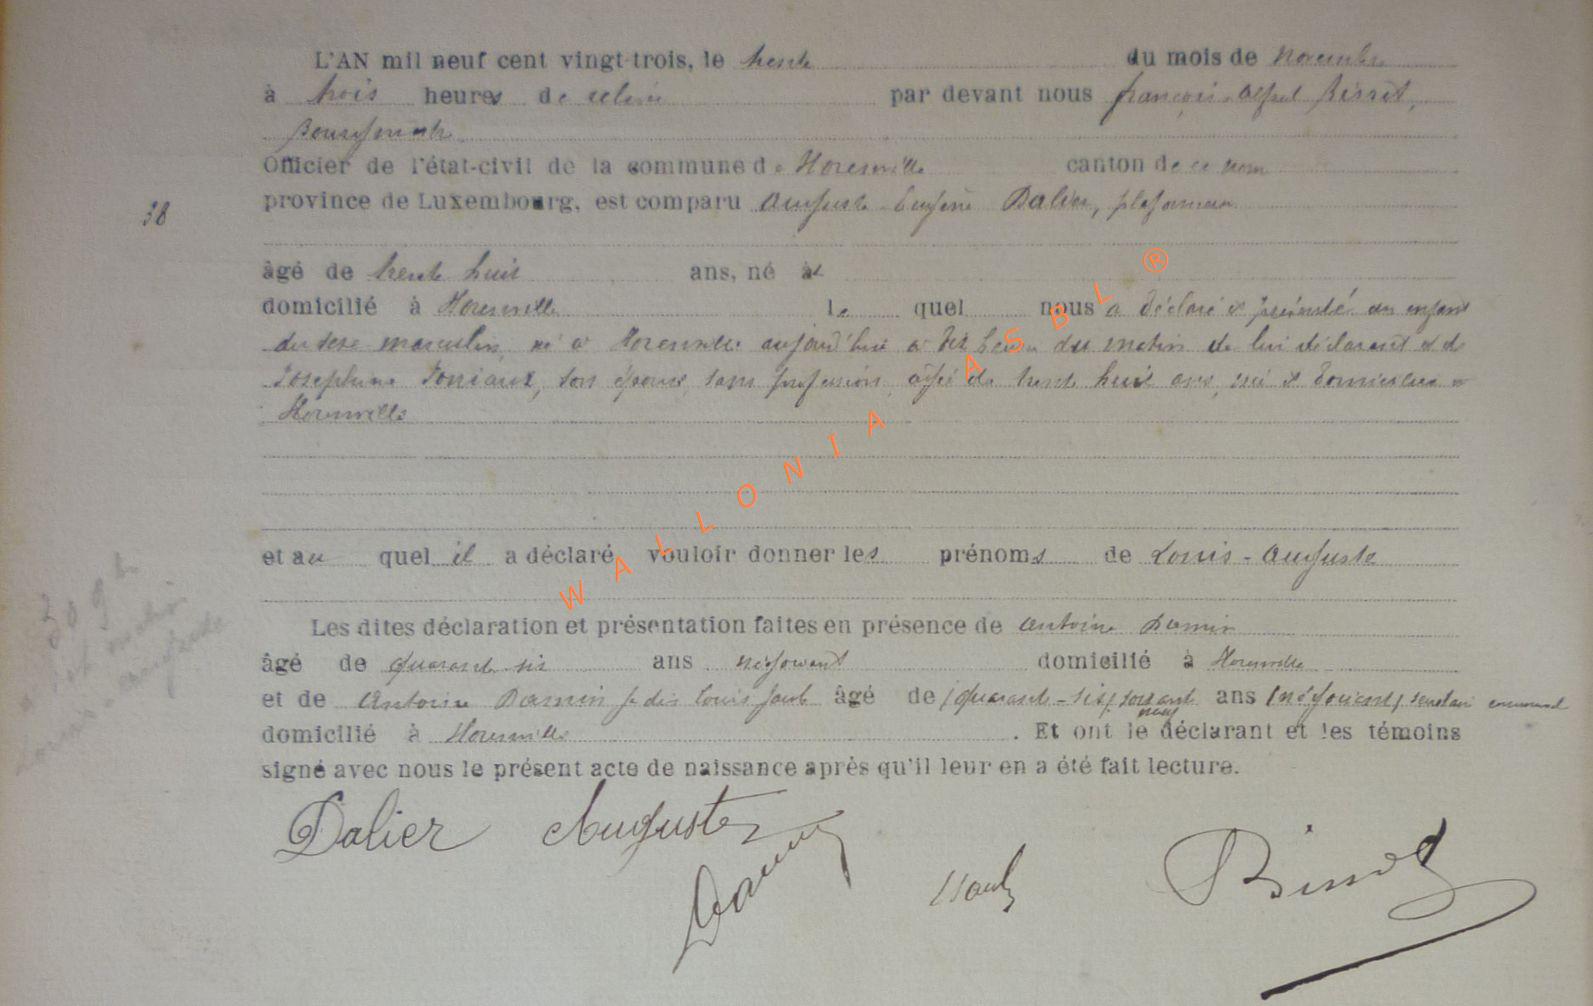 L'AN mil neuf cent vingt-trois, le trente du mois de novembre
à trois heures de relevée par devant nous françois-Alfred Binnot,
Bourgmestre
Officier de l'état-civil de la commune de Horenville canton de ce nom
38
province de Luxembourg, est comparu Auguste Eugène Dalier, plafonneur
âgé de trente huit ans, né à et
domicilié à Horenville le quel nous a déclaré et présenté un enfant
du sexe masculin, né à Horenville aujourd'hui à dix heures du matin de lui déclarant et de
Joséphine Toniaux, son épouse, sans profession, âgée de trente huit ans, née et domiciliée à
Horenville
et au quel il a déclaré vouloir donner les prénoms de Louis-Auguste
Les dites déclaration et présentation faites en présence de Antoine Damin
âgé de quarante six ans négociant domicilié à Horenville
et de Antoine Damin Louis âgé de (quarante-six) soixante ans (négociant) communal
neuf
domicilié à Horenville. Et ont le déclarant et les témoins
signé avec nous le présent acte de naissance après qu'il leur en a été fait lecture.
30 9bre
Louis-Auguste
Dalier Auguste
Damin
Binnot
WALLONIA ASBL ®